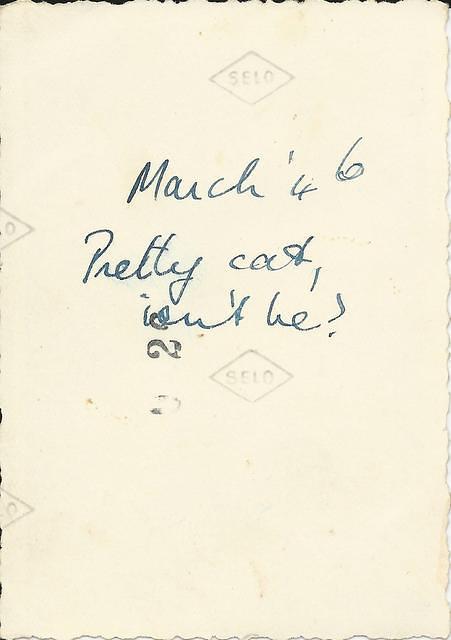 SELO
March '46
O
Pretty cat,
isn't he?
SELO
O